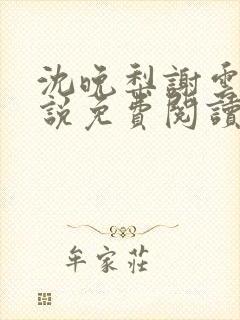 沈晚梨謝雲
說免費閱讀
牟家莊